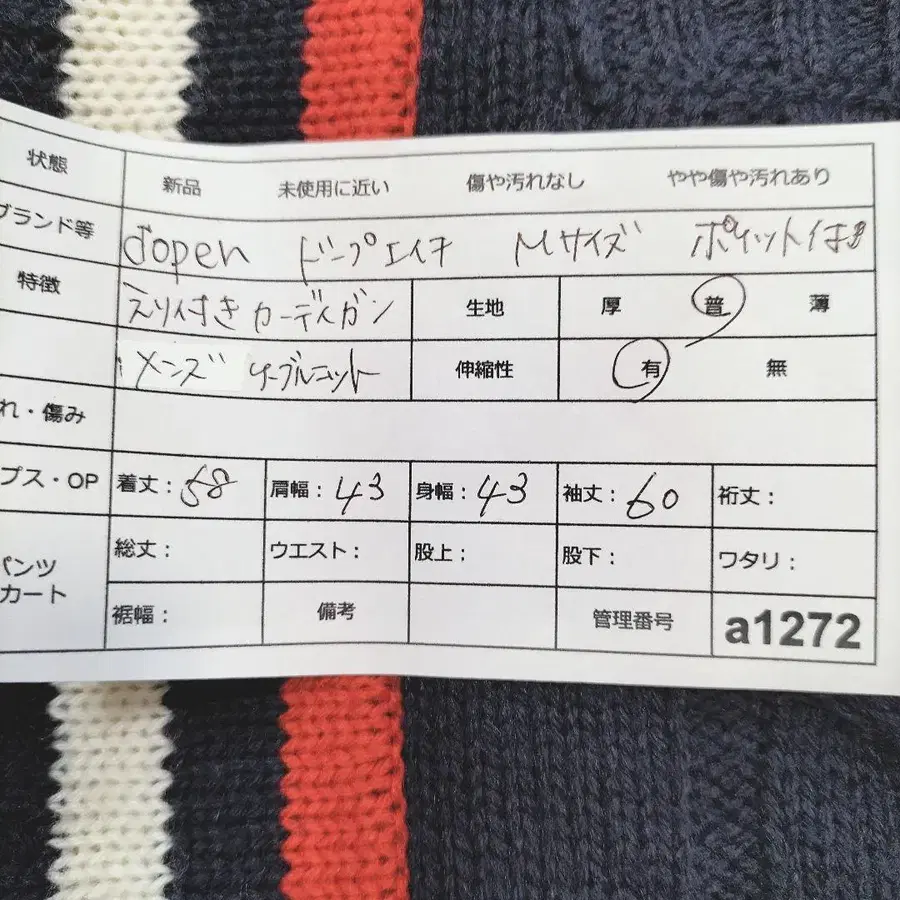 状態 新品 未使用に近い 傷や汚れなし やや傷や汚れあり
ブランド等 dopen ドープエイチ Mサイズ ポケット付き
特徴 えり付き カーディガン 生地 厚 普 薄
メンズ ケーブルニット 伸縮性 有 無
れ・傷み
プス・OP 着丈:58 肩幅:43 身幅:43 袖丈:60 裄丈:
パンツ 総丈: ウエスト: 股上: 股下: ワタリ:
カート 裾幅: 備考 管理番号 a1272